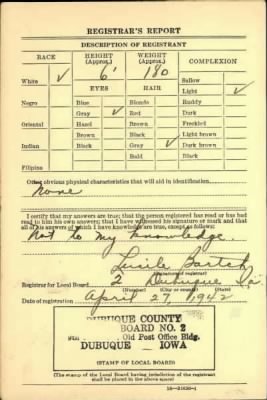 REGISTRAR'S REPORT
DESCRIPTION OF REGISTRANT
RACE HEIGHT (Approx.) WEIGHT (Approx.) COMPLEXION
6' 180
White ✓ Sallow
EYES HAIR Light ✓
Negro Blue Blonde Ruddy
Gray ✓ Red Dark
Oriental Hazel Brown Freckled
Brown Black Light brown
Indian Black Gray ✓ Dark brown
Bald Black
Filipino
Other obvious physical characteristics that will aid in identification
None
I certify that my answers are true; that the person registered has read or has had
read to him his own answers; that I have witnessed his signature or mark and that
all of his answers of which I have knowledge are true, except as follows:
Not to my knowledge.
(Signature of registrar)
Registrar for Local Board 2 Dubuque Ia
(Number) (City or county) (State)
Date of registration April 27, 1942
DUBUQUE COUNTY
BOARD NO. 2
Old Post Office Bldg.
DUBUQUE IOWA
(STAMP OF LOCAL BOARD)
(The stamp of the Local Board having jurisdiction of the registrant
shall be placed in the above space.)